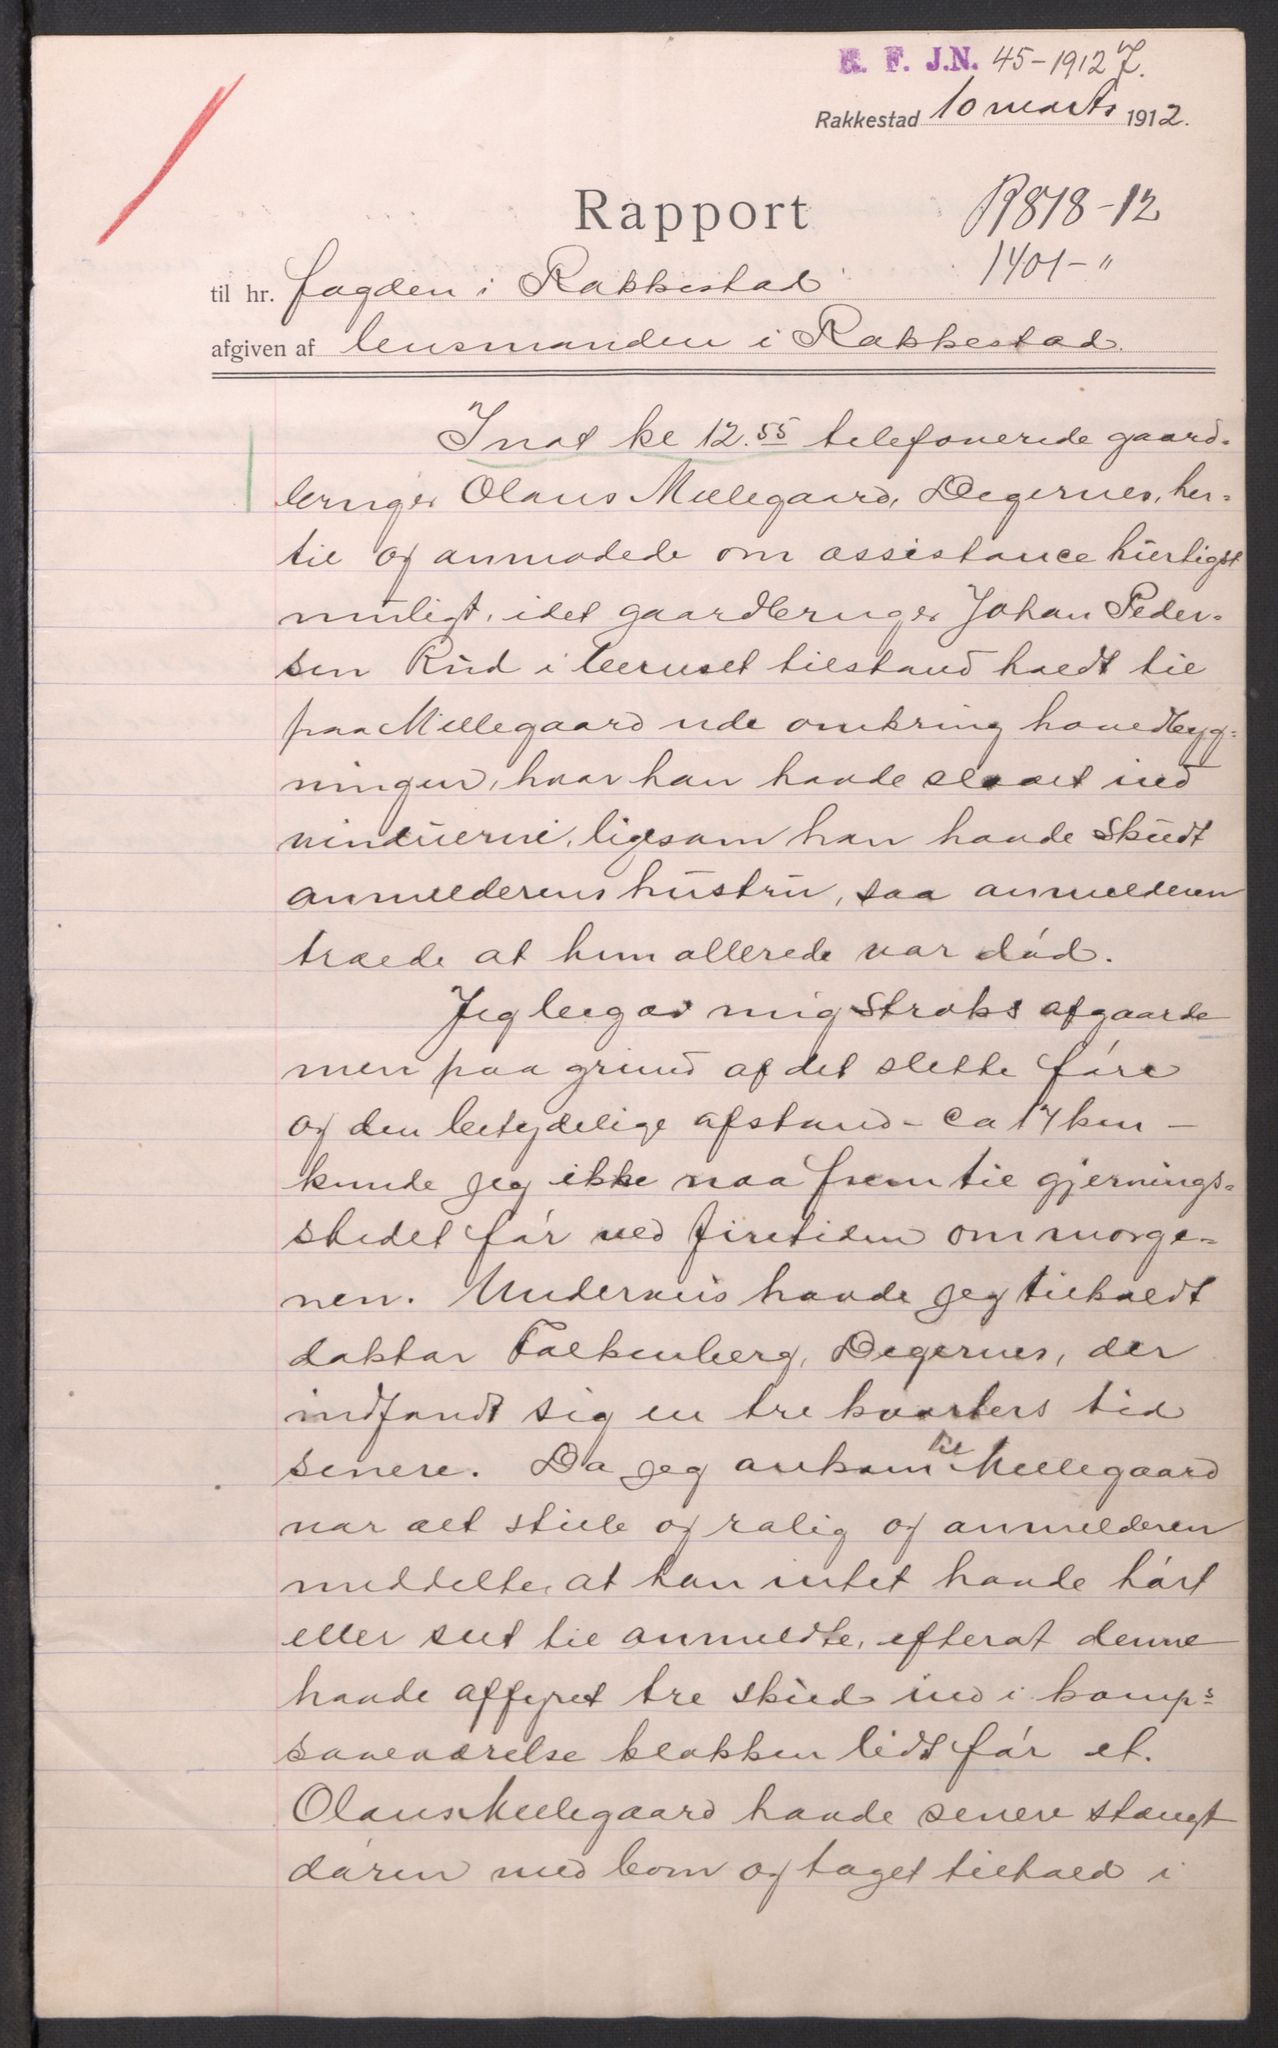 R. F. J.N. 45-1912 J.
Rakkestad 10 marts 1912.
Rapport
R 878-12
1401-"
til hr. fogden i Rakkestad
afgiven af lensmanden i Rakkestad.
Inat kl 12.55 telefonerede gaard-
bruger Olaus Mellegaard, Degernes, her-
til og anmodede om assistance hurtigst
muligt, idet gaardbruger Johan Peder-
sen Rud i beruset tilstand holdt til
paa Mellegaard ude omkring hovedbyg-
ningen, hvor han havde slaaet ind
vinduerne, ligesom han havde skudt
anmelderens hustru, saa anmelderen
troede at hun allerede var død.
Jeg begav mig straks afgaarde
men paa grund af det slette føre
og den betydelige afstand - ca 17 km -
kunde jeg ikke naa frem til gjernings-
stedet før ved firetiden om morge-
nen. Underveis havde jeg tilkaldt
doktor Falkenberg, Degernes, der
indfandt sig en tre kvarters tid
senere. Da jeg ankom til Mellegaard
var alt stille og rolig og anmelderen
meddelte, at han intet havde hørt
eller set til anmeldte, efterat denne
havde affyret tre skud ind i
soveværelse klokken lidt før et.
Olaus Mellegaard havde senere stængt
døren med bom og taget tilhold i